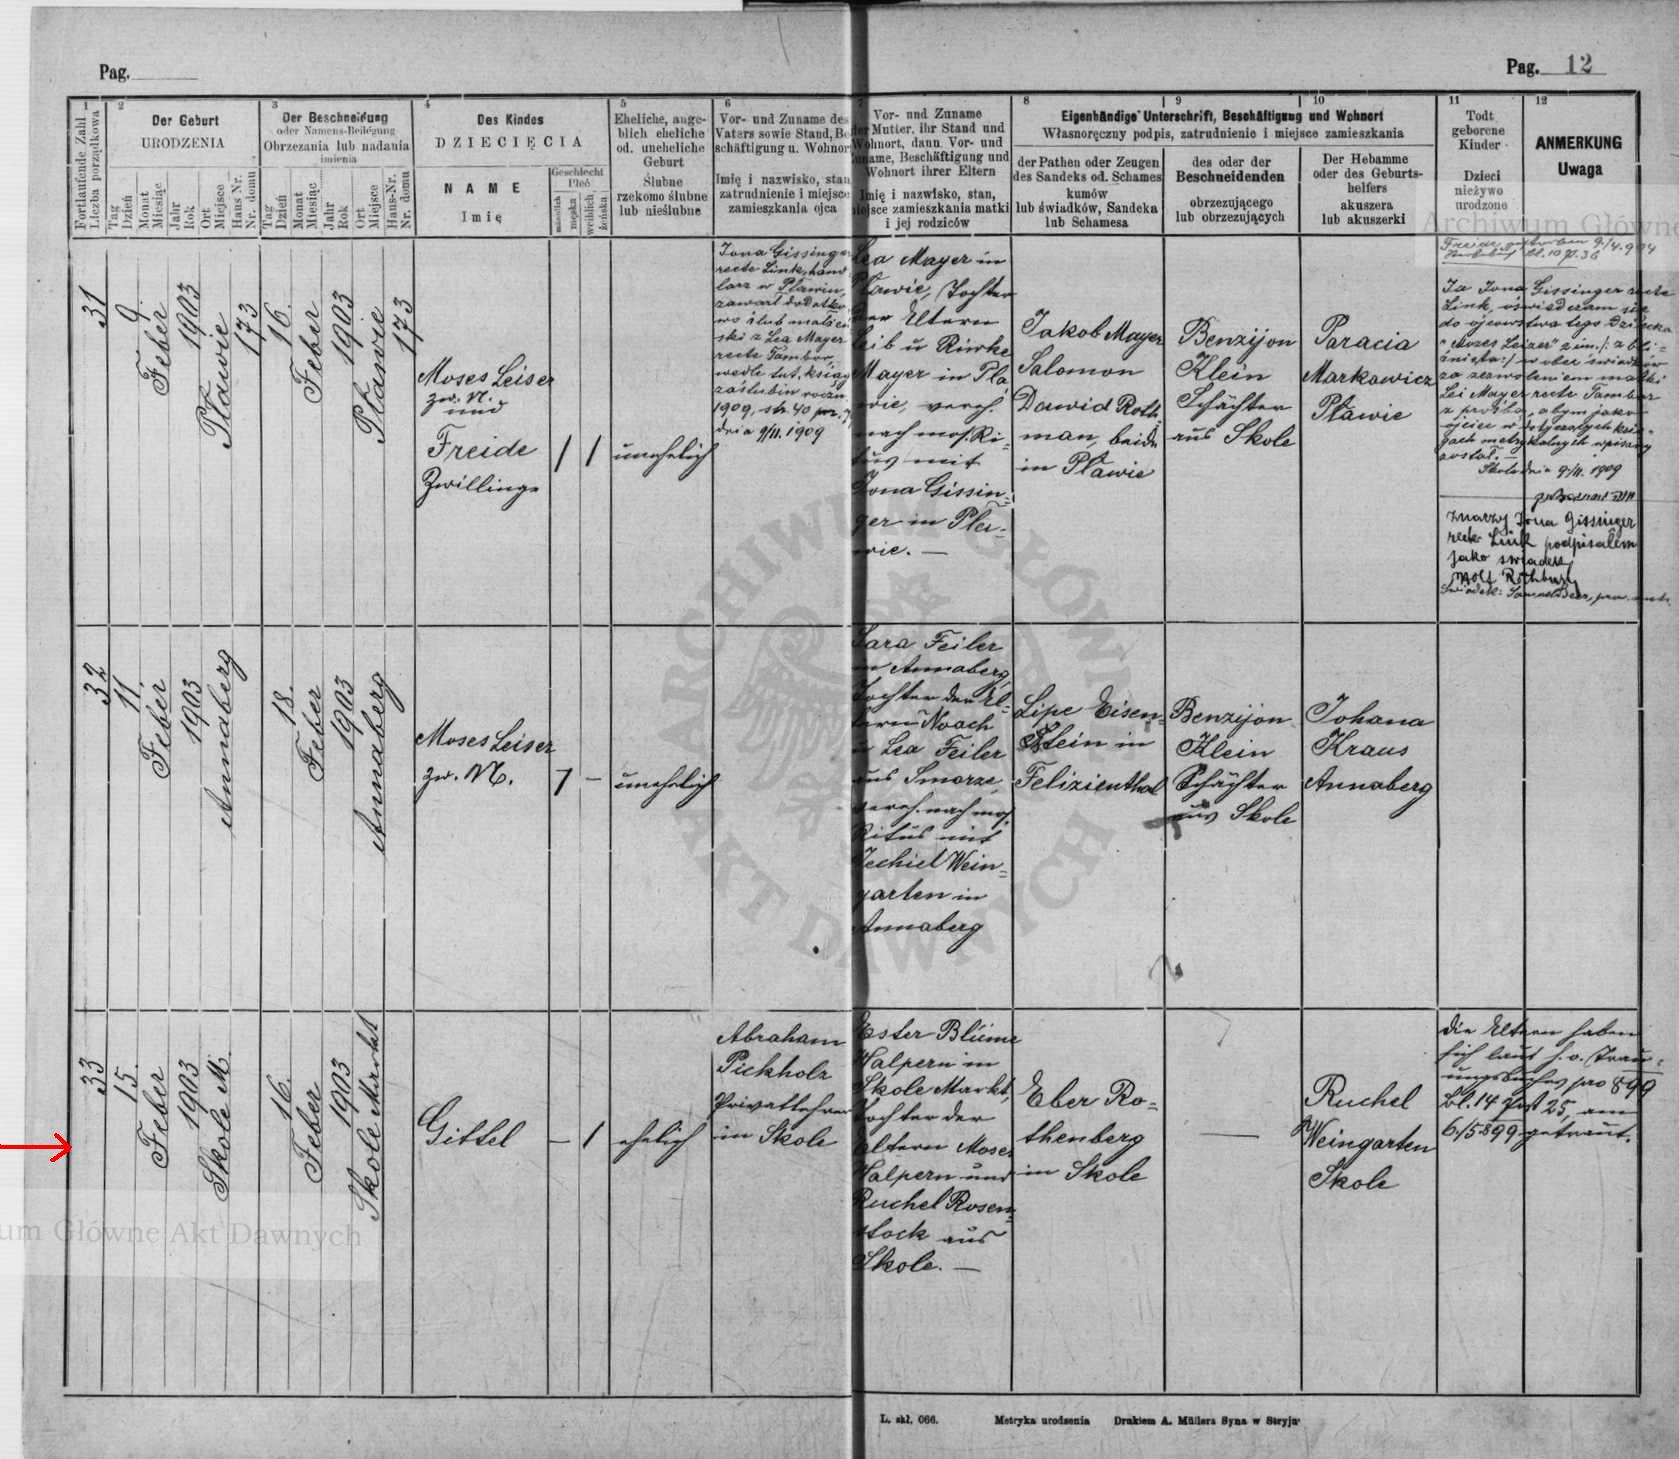 Pag.
Pag. 12
1
2
3
4
5
6
7
8
9
10
11
12
Fortlaufende Zahl
Liczba porządkowa
Der Geburt
URODZENIA
Tag
Dzień
Monat
Miesiąc
Jahr
Rok
Ort
Miejsce
Haus Nr.
Nr. domu
Der Beschneidung
oder Namens-Beilegung
Obrzezania lub nadania
imienia
Tag
Dzień
Monat
Miesiąc
Jahr
Rok
Ort
Miejsce
Haus-Nr.
Nr. domu
Des Kindes
DZIECIĘCIA
NAME
Imię
Geschlecht
Płeć
männlich
męska
weiblich
żeńska
Eheliche, ange-
blich eheliche
od. uneheliche
Geburt
Ślubne
rzekomo ślubne
lub nieślubne
Vor- und Zuname des
Vaters sowie Stand, Be
schäftigung u. Wohnor
Imię i nazwisko, stan
zatrudnienie i miejsce
zamieszkania ojca
Vor- und Zuname
der Mutter, ihr Stand und
Wohnort, dann Vor- und
Zuname, Beschäftigung und
Wohnort ihrer Eltern
Imię i nazwisko, stan,
miejsce zamieszkania matki
i jej rodziców
Eigenhändige Unterschrift, Beschäftigung und Wohnort
Własnoręczny podpis, zatrudnienie i miejsce zamieszkania
der Pathen oder Zeugen
des Sandeks od. Schames
kumów
lub świadków, Sandeka
lub Schamesa
des oder der
Beschneidenden
obrzezującego
lub obrzezujących
Der Hebamme
oder des Geburts-
helfers
akuszera
lub akuszerki
Todt
geborene
Kinder
Dzieci
nieżywo
urodzone
ANMERKUNG
Uwaga
Archiwum Główne
31
9.
Feber
1903
Pławie
173
16.
Feber
1903
Pławie
173
Moses Leiser
zw. N.
und
Freide
Zwillinge
1
1
unehelich
Jona Gissinger
recte Link, hand
larz w Pławiu,
zawarł dodatko
wo ślub małżeń
ski z Lea Mayer
recte Tambor,
wedle tut. ksiąg
zaślubin roczn.
1909, str. 40 poz. 7
dnia 9/11. 1909
Lea Mayer in
Plawie, Tochter
der Eltern
Leib u Riwke
Mayer in Pla
wie, vereh.
nach mos. Ri-
tus mit
Jona Gissin-
ger in Pla-
wie. —
Jakob Mayer
Salomon
Dawid Roth
man, beide
in Pławie
Benzijon
Klein
Schächter
aus Skole
Paracia
Markowicz
Pławie
Freide gestorben 9/4.904
Ja Jona Gissinger recte
Link, oświadczam się
do ojcowstwa tego dziecka
"Mozes Leizer" z im. /: z bli=
źnięta :/ w obec świadków
za zezwoleniem matki
Lei Mayer recte Tambor
z prośbą, abym jako
ojciec w dotyczących księ-
gach metrykalnych wpisany
został. —
Skole dnia 9/11. 1909
Znaczy Jona Gissinger
recte Link podpisałem
jako świadek
32
11.
Feber
1903
Annaberg
18.
Feber
1903
Annaberg
Moses Leiser
zw. N.
1
—
unehelich
Sara Feiler
in Annaberg,
Tochter der El-
tern Noach
u Lea Feiler
aus Smorze,
vereh. nach mos.
Ritus mit
Jechiel Wein-
garten in
Annaberg
Lipe Eisen-
stein in
Felizienthal
Benzijon
Klein
Schächter
aus Skole
Johana
Kraus
Annaberg
33
15.
Feber
1903
Skole M.
16.
Feber
1903
Skole Markt
Gittel
—
1
ehelich
Abraham
Pickholz
Privatlehrer
in Skole
Ester Blüme
Halpern in
Skole Markt,
Tochter der
Eltern Moses
Halpern und
Ruchel Rosen-
stock aus
Skole. —
Eber Ro-
thenberg
in Skole
—
Ruchel
Weingarten
Skole
Die Eltern haben
sich laut h. o. Trau-
ungsbuches pro 899
Bl. 14 Post 25 am
6./5 899 getraut.
ARCHIWUM GŁÓWNE AKT DAWNYCH
um Główne Akt Dawnych
L. skł. 066.
Metryka urodzenia
Drukiem A. Müllera Syna w Stryju